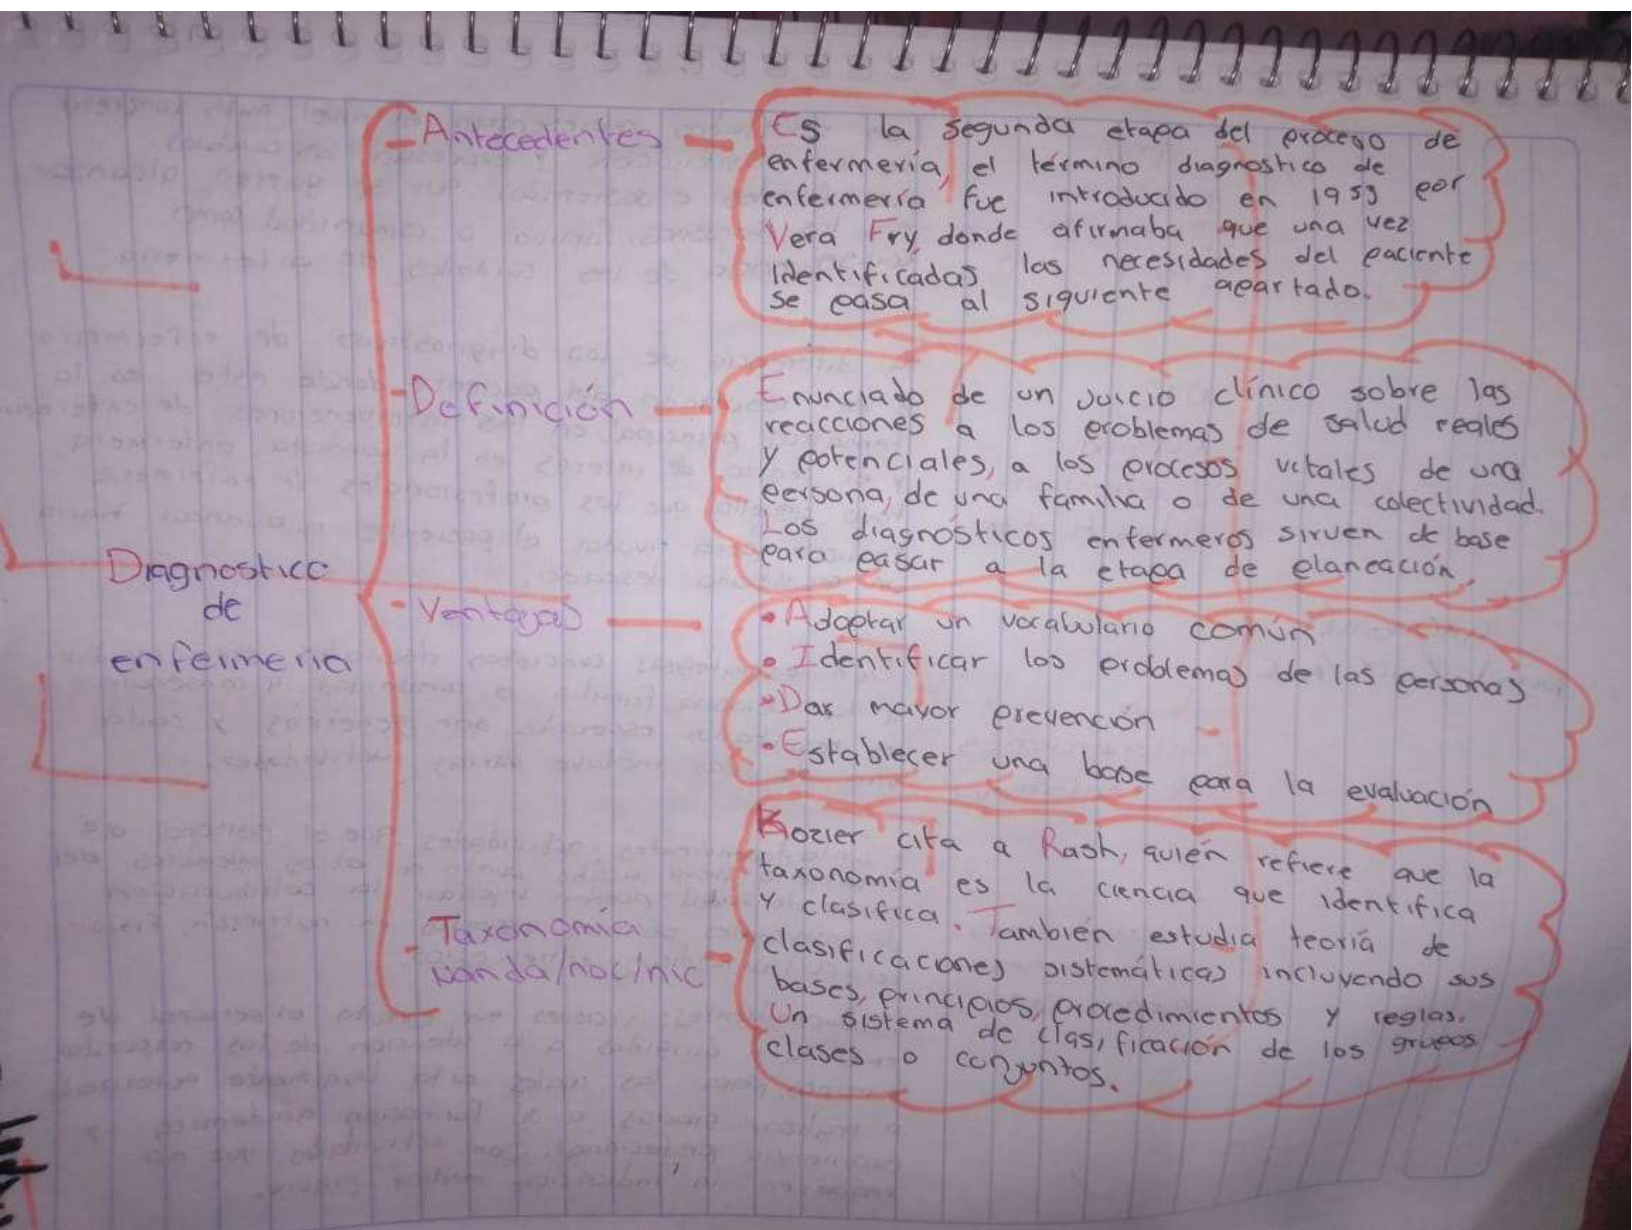 Diagnostico
de
enfermeria
- Antecedentes
Es la segunda etapa del proceso de
enfermería, el término diagnostico de
enfermería fue introducido en 1953 por
Vera Fry, donde afirmaba que una vez
identificadas las necesidades del paciente
se pasa al siguiente apartado.
- Definición
Enunciado de un juicio clínico sobre las
reacciones a los problemas de salud reales
y potenciales, a los procesos vitales de una
persona, de una familia o de una colectividad.
Los diagnosticos enfermeros sirven de base
para pasar a la etapa de planeación.
- Ventajas
• Adoptar un vocabulario común
• Identificar los problemas de las personas
• Dar mayor prevención
• Establecer una base para la evaluación
- Taxonomía
nanda/noc/nic
Kozier cita a Rash, quién refiere que la
taxonomía es la ciencia que identifica
y clasifica. También estudia teoría de
clasificaciones sistemáticas incluyendo sus
bases, principios, procedimientos y reglas.
Un sistema de clasificación de los grupos
clases o conjuntos.